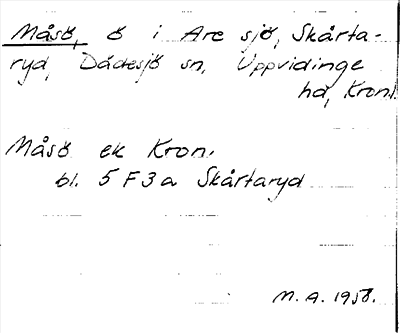 Måsö, ö i Are sjö, Skårta-
ryd, Dädesjö sn, Uppvidinge
hd, Kronl.
Måsö ek Kron.
bl. 5 F 3 a Skårtaryd
M. A. 1958.